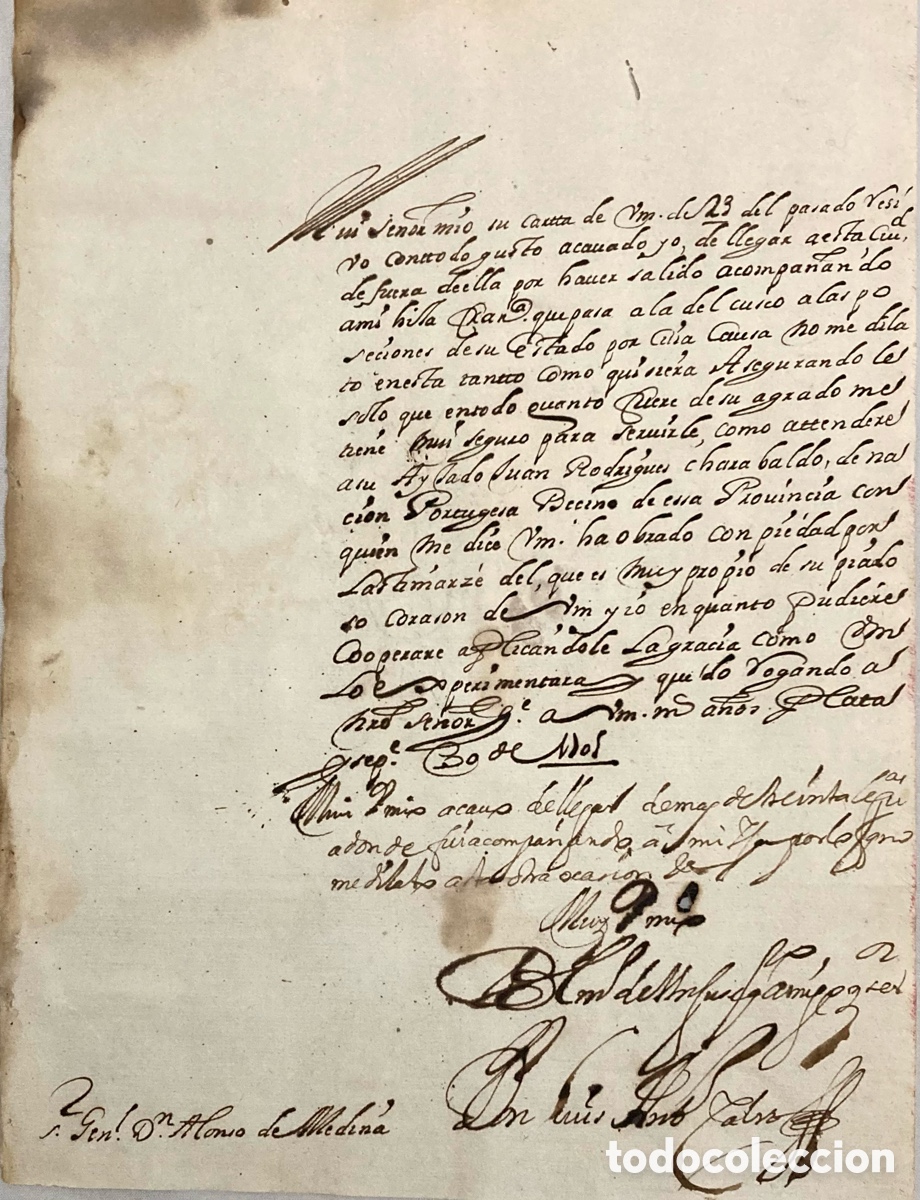 Mui Señor mio su cartta de Vm. de 23 del pasado resi
vo conttodo gusto acavado yo, de llegar a esta Ciud.
de fuera de ella por haver salido acompañando
a mi hija que pasa a la del cusco a las po
seciones de su estado por cuia causa no me dila
to en esta tantto como quisiera Asegurando le
solo que en todo quanto fuere de su agrado me
tiene mui seguro para servirle, como attendere
a su Ayjado Juan Rodrigues charabaldo, de na
cion Portugesa Becino de essa Provincia con
quien me dice Vm. ha obrado con piedad por
Lastimarze del, que es muy propio de su piado
so corason de Vm y io en quanto pudiere
Cooperare aplicandole La gracia como Vm
Lo experimentara y quedo rogando a
nro Señor ge. a Vm. ms años Plata
y sepe. 30 de 1701
Mui S mio acavo de llegar de mas de treinta leguas
a donde fui acompañando a mi por lo que no
me dilato a otra ocasion
Muy S mio
Don Luis Anto
Sr. Genl. Dn. Alonso de Medina
todocoleccion